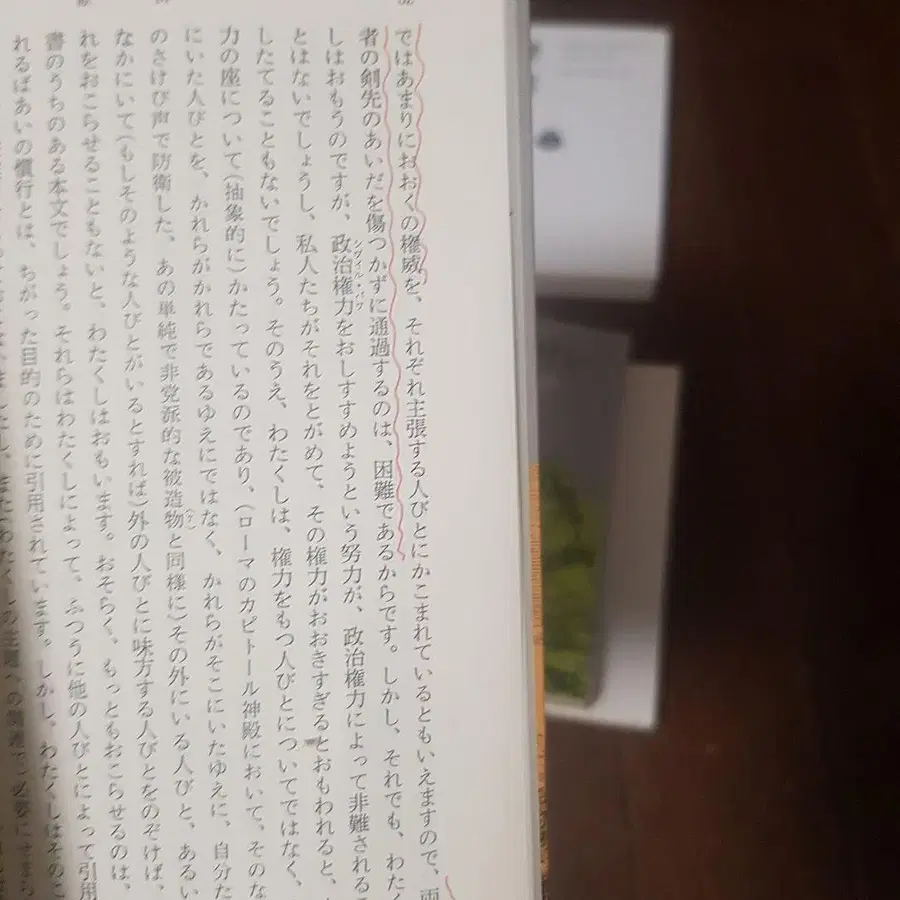 ではあまりにおおくの権威を、それぞれ主張する人びとにかこまれているともいえますので、両
者の剣先のあいだを傷つかずに通過するのは、困難であるからです。しかし、それでも、わたく
しはおもうのですが、政治権力をおしすすめようという努力が、政治権力によって非難されるこ
シヴィル・パワ
とはないでしょうし、私人たちがそれをとがめて、その権力がおおきすぎるとおもわれると、
したてることもないでしょう。そのうえ、わたくしは、権力をもつ人びとについてではなく、
力の座について(抽象的に)かたっているのであり、(ローマのカピトール神殿において、そのな
にいた人びとを、かれらがかれらであるゆえにではなく、かれらがそこにいたゆえに、自分た
のさけび声で防衛した、あの単純で非党派的な被造物(7)と同様に)その外にいる人びと、あるい
なかにいて(もしそのような人びとがいるとすれば)外の人びとに味方する人びとをのぞけば、
れをおこらせることもないと、わたくしはおもいます。おそらく、もっともおこらせるのは、
書のうちのある本文でしょう。それらはわたくしによって、ふつうに他の人びとによって引用
れるばあいの慣行とは、ちがった目的のために引用されています。しかし、わたくしはそのこ